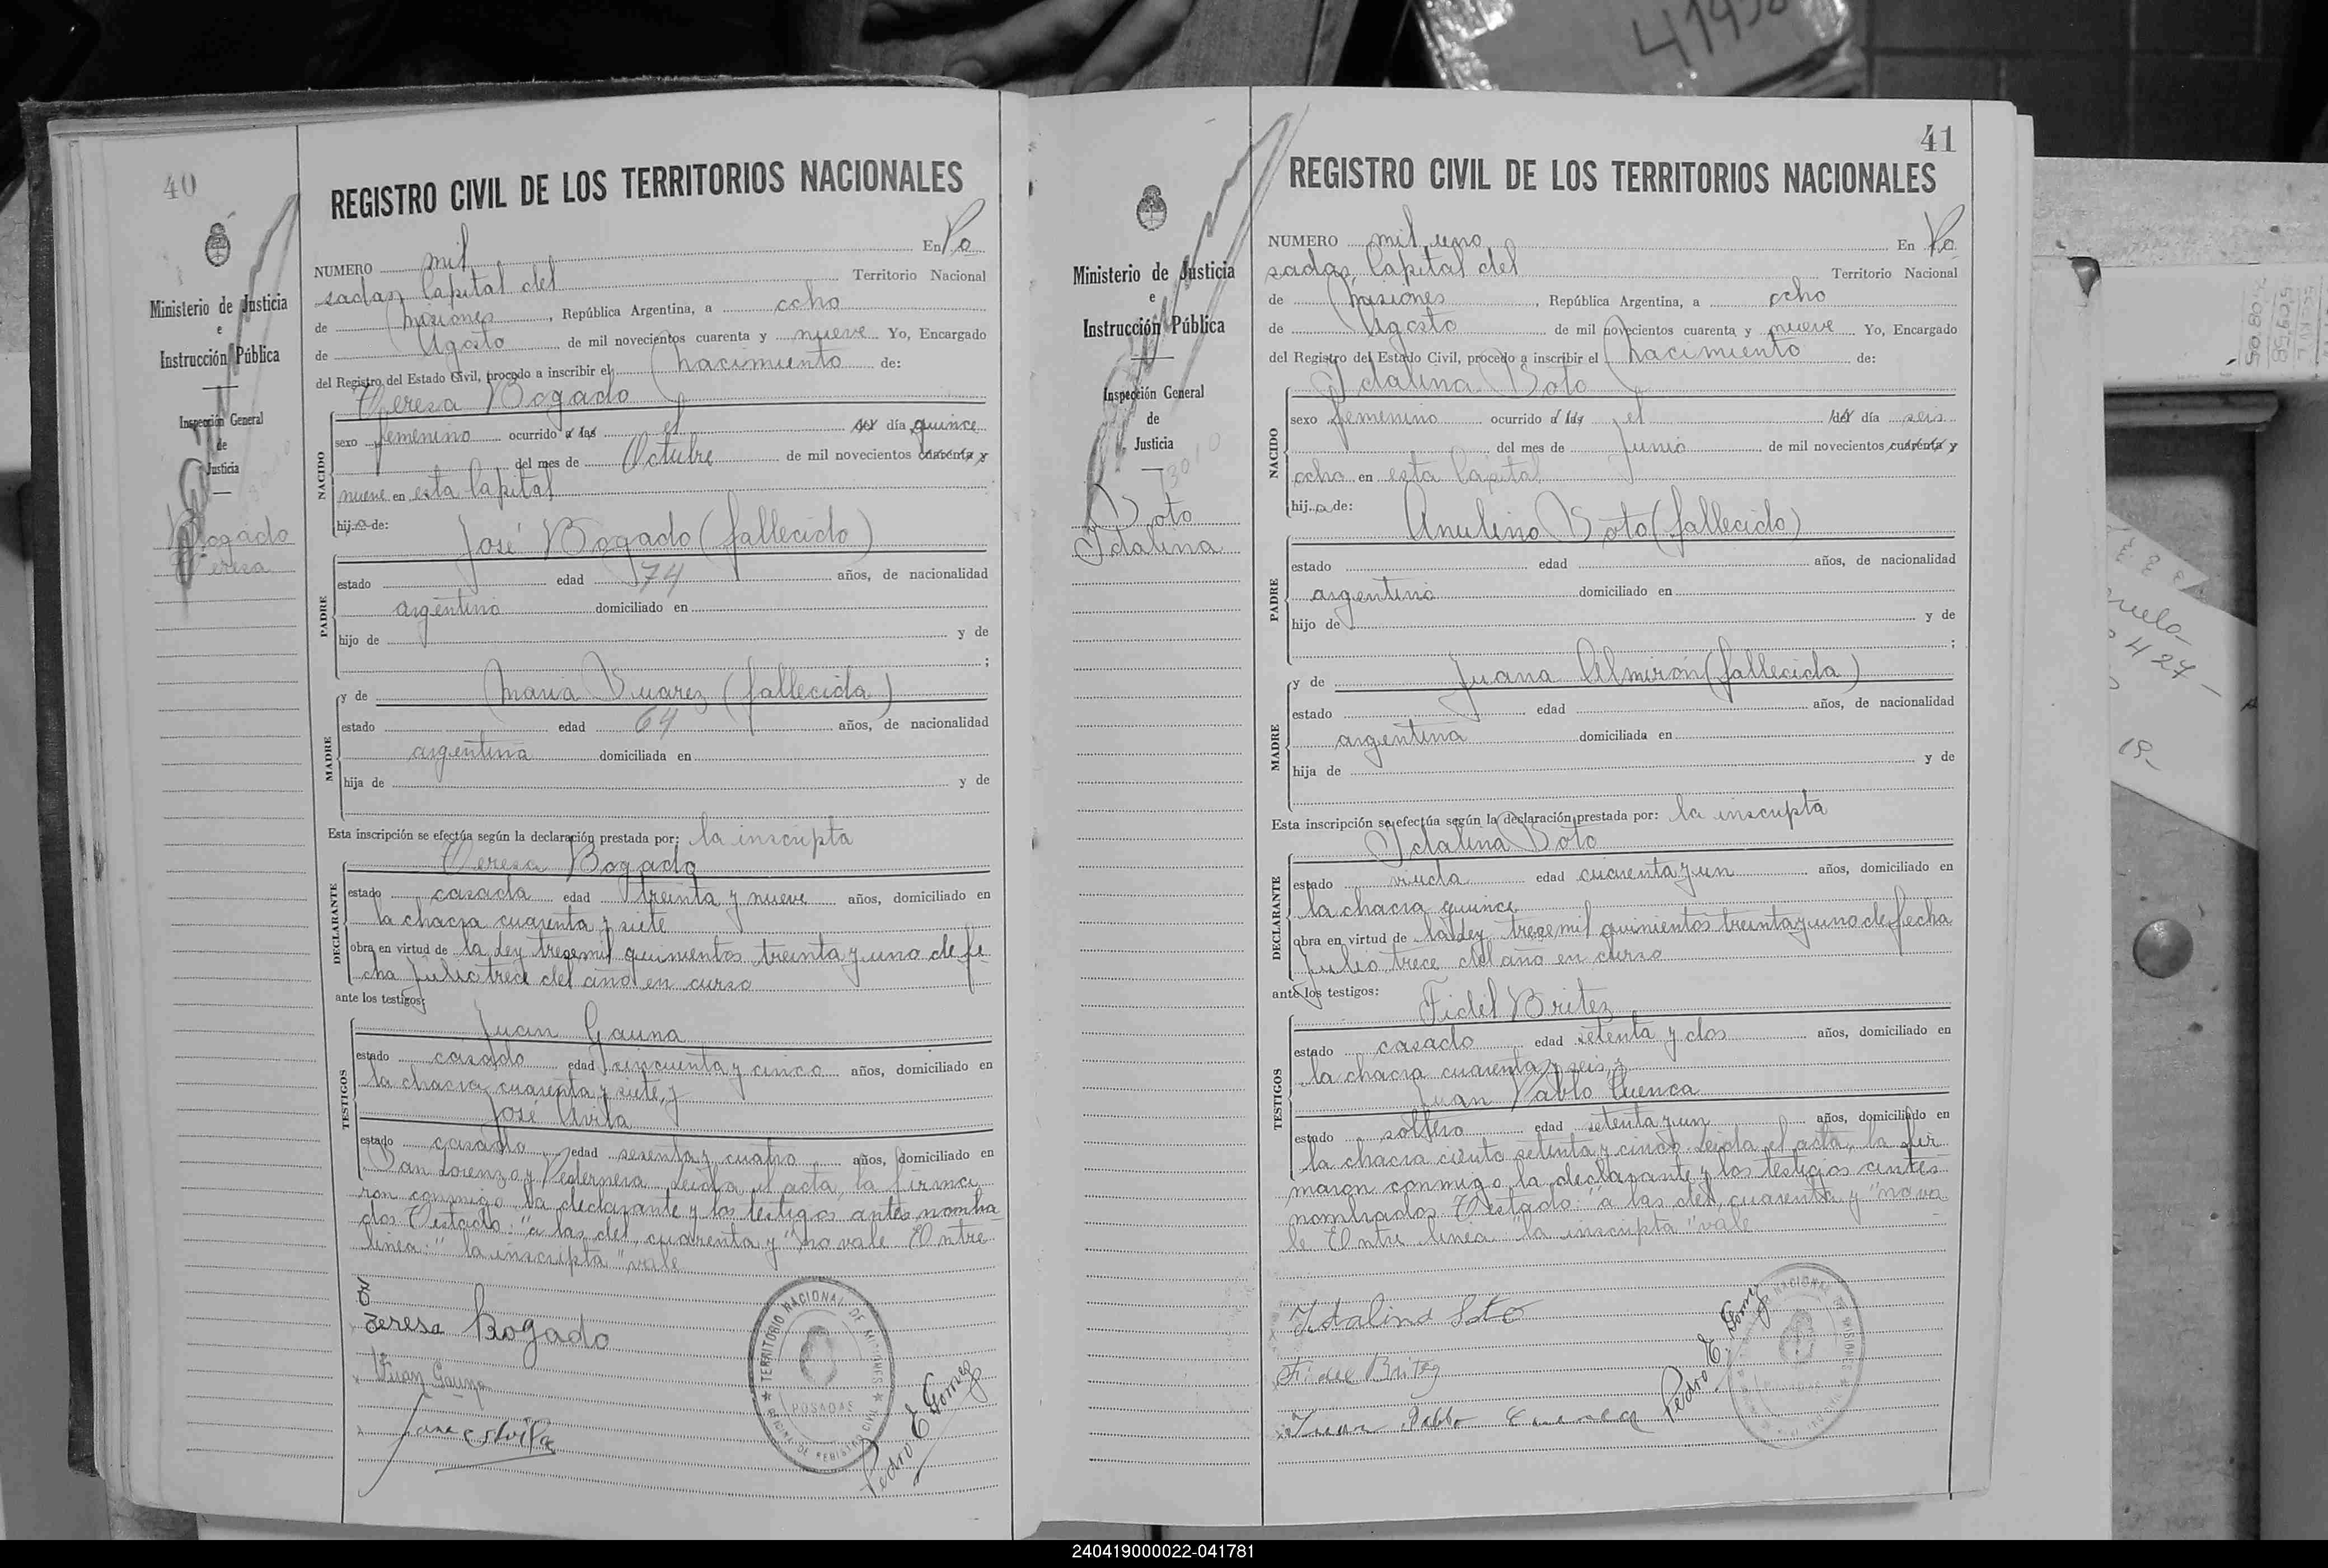 41450
40
Ministerio de Justicia
e
Instrucción Pública
Inspección General
de
Justicia
Bogado
Teresa
REGISTRO CIVIL DE LOS TERRITORIOS NACIONALES
NUMERO mil En Po
sadas Capital del Territorio Nacional
de Misiones, República Argentina, a ocho
de Agosto de mil novecientos cuarenta y nueve Yo, Encargado
del Registro del Estado Civil, procedo a inscribir el nacimiento de:
Teresa Bogado
NACIDO
sexo femenino ocurrido a las el del día quince
del mes de Octubre de mil novecientos cuarenta y
nueve en esta Capital
hija de:
José Bogado (fallecido)
PADRE
estado edad 74 años, de nacionalidad
argentino domiciliado en
hijo de y de
;
y de Maria Suarez (fallecida)
MADRE
estado edad 64 años, de nacionalidad
argentina domiciliada en
hija de y de
Esta inscripción se efectúa según la declaración prestada por: la inscripta
Teresa Bogado
DECLARANTE
estado casada edad treinta y nueve años, domiciliado en
la chacra cuarenta y siete
obra en virtud de la Ley trece mil quinientos treinta y uno de fe
cha Julio trece del año en curso
ante los testigos:
Juan Gauna
TESTIGOS
estado casado edad cincuenta y cinco años, domiciliado en
la chacra cuarenta y siete, y
José Avila
estado casado edad sesenta y cuatro años, domiciliado en
San Lorenzo y Pedernera Leida el acta, la firma
ron conmigo la declarante y los testigos antes nombra
dos Testado: "a las del, cuarenta y" no vale Entre
linea: "la inscripta" vale
Teresa Bogado
Juan Gauna
Jose Avila
TERRITORIO NACIONAL DE MISIONES
POSADAS
OFICINA DE REGISTRO CIVIL
Pedro E Gomez
41
Ministerio de Justicia
e
Instrucción Pública
Inspección General
de
Justicia
Soto
Idalina
REGISTRO CIVIL DE LOS TERRITORIOS NACIONALES
NUMERO mil uno En Po
sadas Capital del Territorio Nacional
de Misiones, República Argentina, a ocho
de Agosto de mil novecientos cuarenta y nueve Yo, Encargado
del Registro del Estado Civil, procedo a inscribir el nacimiento de:
Idalina Soto
NACIDO
sexo femenino ocurrido a las el del día seis
del mes de Junio de mil novecientos cuarenta y
ocho en esta Capital
hija de:
Anulino Soto (fallecido)
PADRE
estado edad años, de nacionalidad
argentino domiciliado en
hijo de y de
;
y de Juana Almirón (fallecida)
MADRE
estado edad años, de nacionalidad
argentina domiciliada en
hija de y de
Esta inscripción se efectúa según la declaración prestada por: la inscripta
Idalina Soto
DECLARANTE
estado viuda edad cuarenta y un años, domiciliado en
la chacra quince
obra en virtud de la Ley trece mil quinientos treinta y uno de fecha
Julio trece del año en curso
ante los testigos:
Fidel Britez
TESTIGOS
estado casado edad setenta y dos años, domiciliado en
la chacra cuarenta y seis, y
Juan Pablo Cuenca
estado soltero edad setenta y un años, domiciliado en
la chacra ciento setenta y cinco. Leida el acta, la fir
maron conmigo la declarante y los testigos antes
nombrados. Testado: "a las del, cuarenta y" no va
le Entre linea: "la inscripta" vale
Idalina Soto
Fidel Britez
Juan Pablo Cuenca
Pedro E. Gomez
240419000022-041781